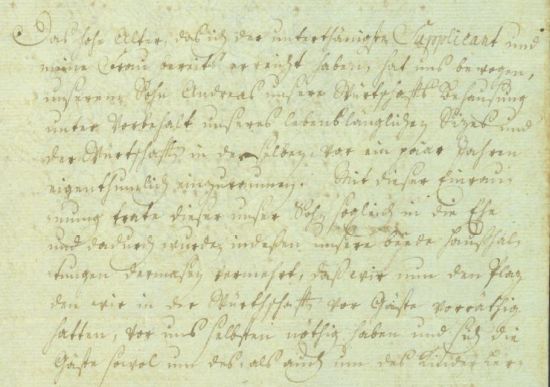 Das hohe Alter, das ich der unterthänigste Supplicant und
meine Frau bereits erreicht haben, hat uns bewogen,
unserem Sohn Andreas unsere Würthschafts Behausung
unter Vorbehalt unseres lebenslänglichen Sizes und
der Würthschafft in derselben, vor ein paar Jahren
eigenthumlich einzuraumen. Mit dieser Einrau-
mung trate dieser unser Sohn sogleich in die Ehe
und dadurch wurden indeßen unsere beede Haußhal-
tungen dermasen vermehrt, daß wir nun den Plaz
den wir in der Würthschafft vor Gäste vorräthig
hatten, vor uns selbsten nöthig haben und sich die
Gäste sowol um des, als auch um des Kinder Ler-